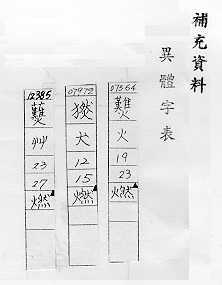 補充資料
異體字表
07564
火
19
23
燃
07979
犬
12
15
燃
12385
艸
23
27
燃